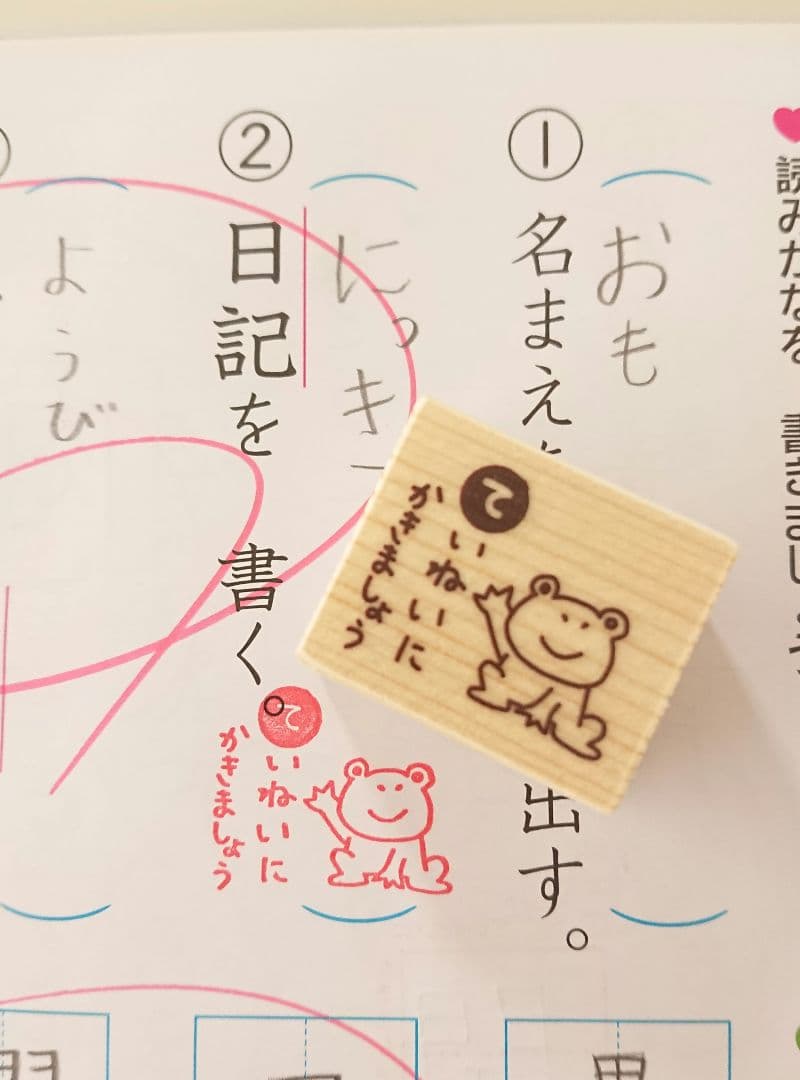 読みがなを 書きましょう
①
おも
名まえを
出す。
②
にっき
日記を 書く。
ようび
ていねいに
かきましょう
ていねいに
かきましょう